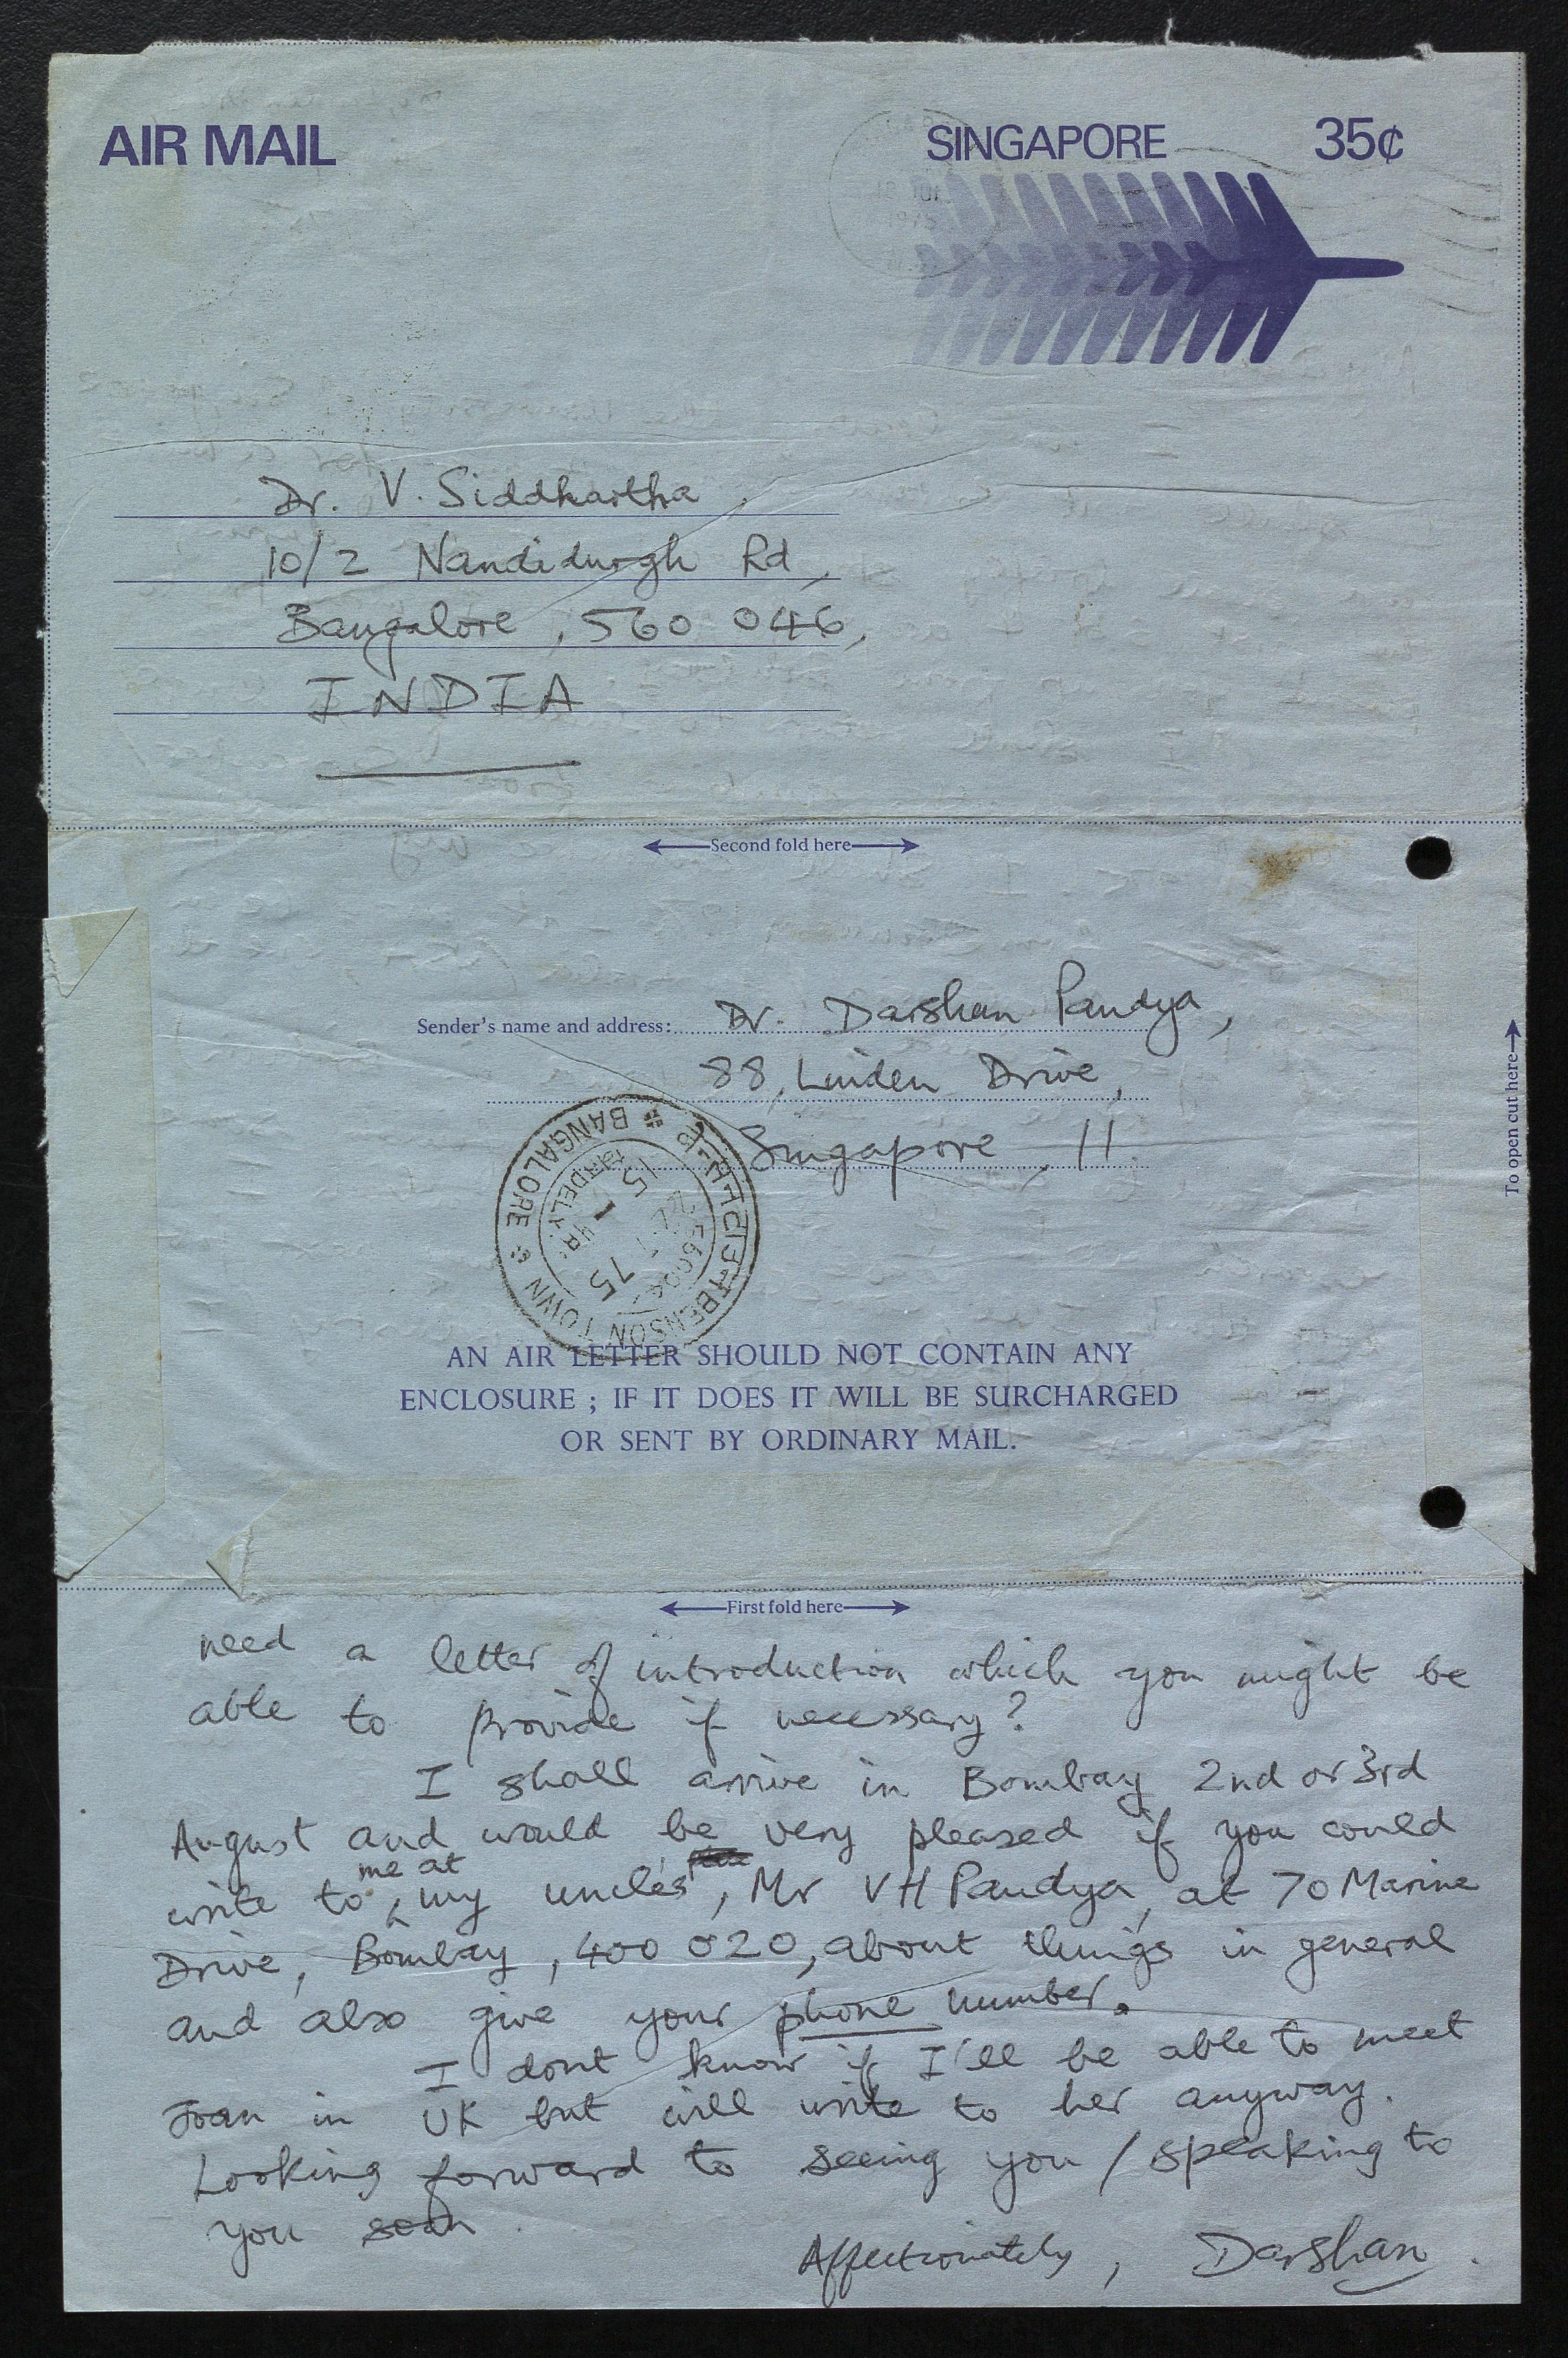 AIR MAIL
SINGAPORE 35¢
Dr. V. Siddhartha,
10/2 Nandidurgh Rd,
Bangalore, 560 046,
INDIA
Second fold here
Sender's name and address: Dr. Darshan Pandya,
88, Linden Drive,
Singapore, 11.
To open cut here
BANGALORE
BENSON TOWN
15
75
AN AIR LETTER SHOULD NOT CONTAIN ANY
ENCLOSURE ; IF IT DOES IT WILL BE SURCHARGED
OR SENT BY ORDINARY MAIL.
First fold here
need a letter of introduction which you might be
able to provide if necessary?
I shall arrive in Bombay 2nd or 3rd
August and would be very pleased if you could
write to me at my uncles', Mr VH Pandya, at 70 Marine
Drive, Bombay, 400 020, about things in general
and also give your phone number.
I dont know if I'll be able to meet
Joan in UK but will write to her anyway.
Looking forward to seeing you / speaking to
you soon.
Affectionately, Darshan.